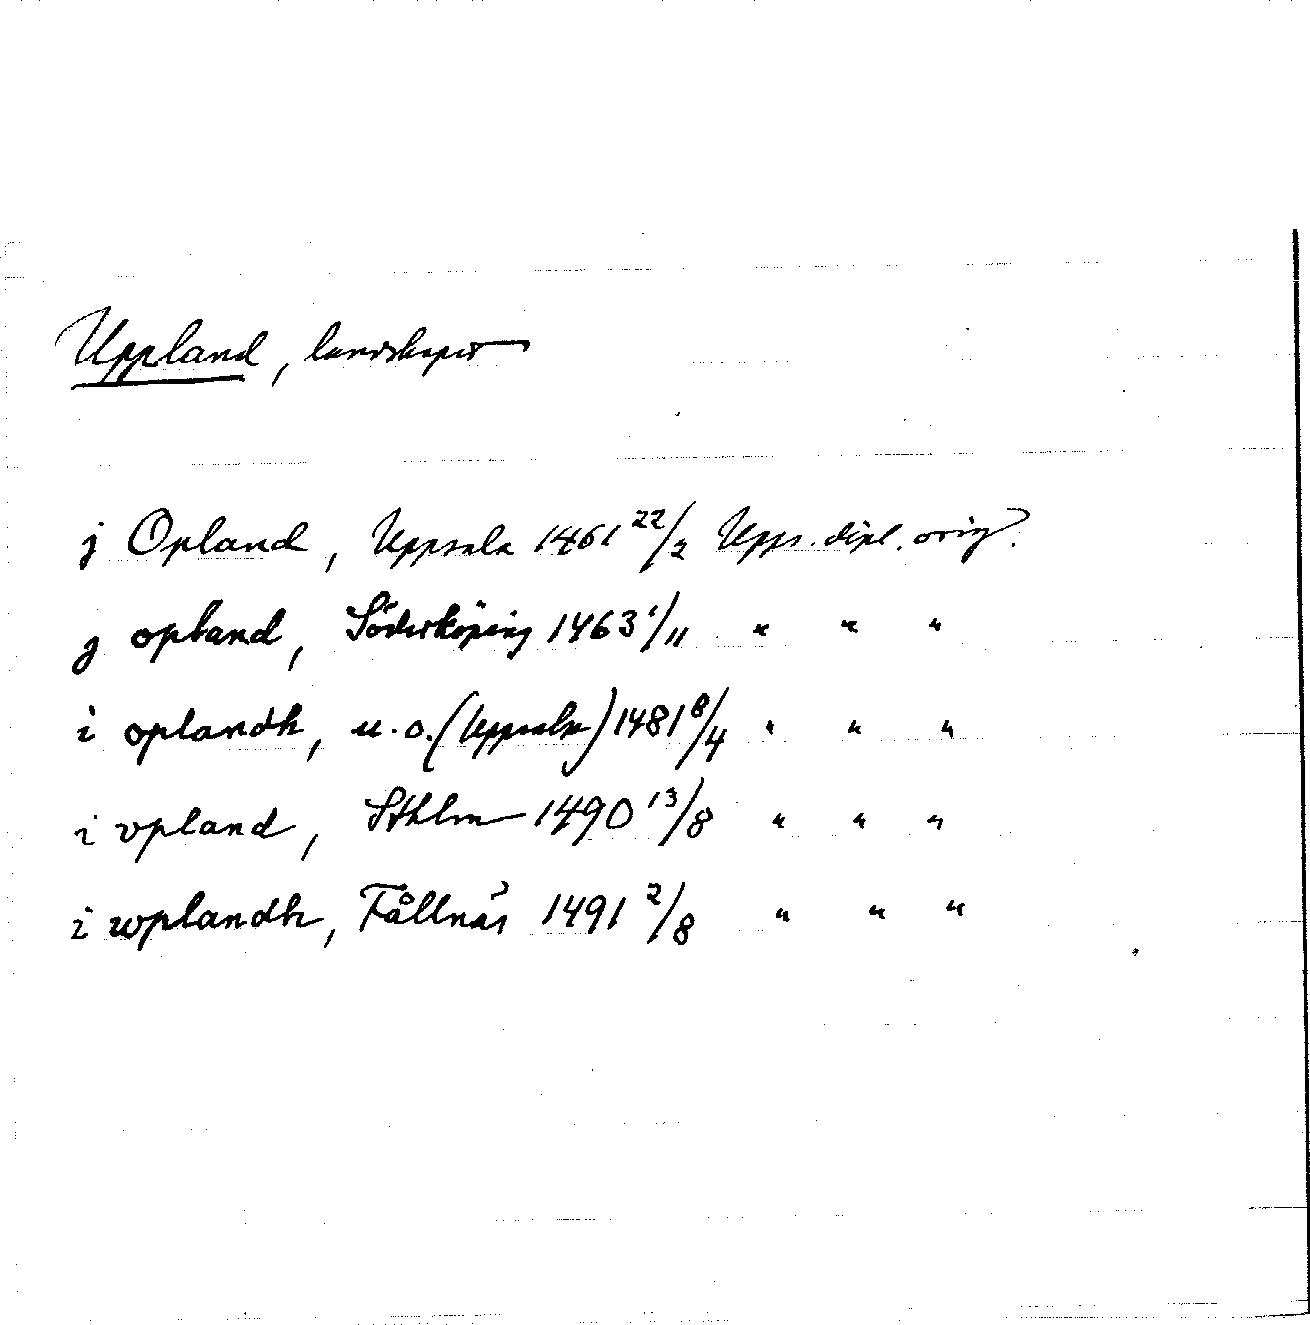 Uppland, landskapet
j Opland, Uppsala 1461 22/2 Upps. dipl. orig.
j opland, Söderköping 1463 1/11 " " "
i oplandh, u.o. (Uppsala) 1481 8/4 " " "
i vpland, Sthlm 1490 13/8 " " "
i wplandh, Fållnäs 1491 2/8 " " "